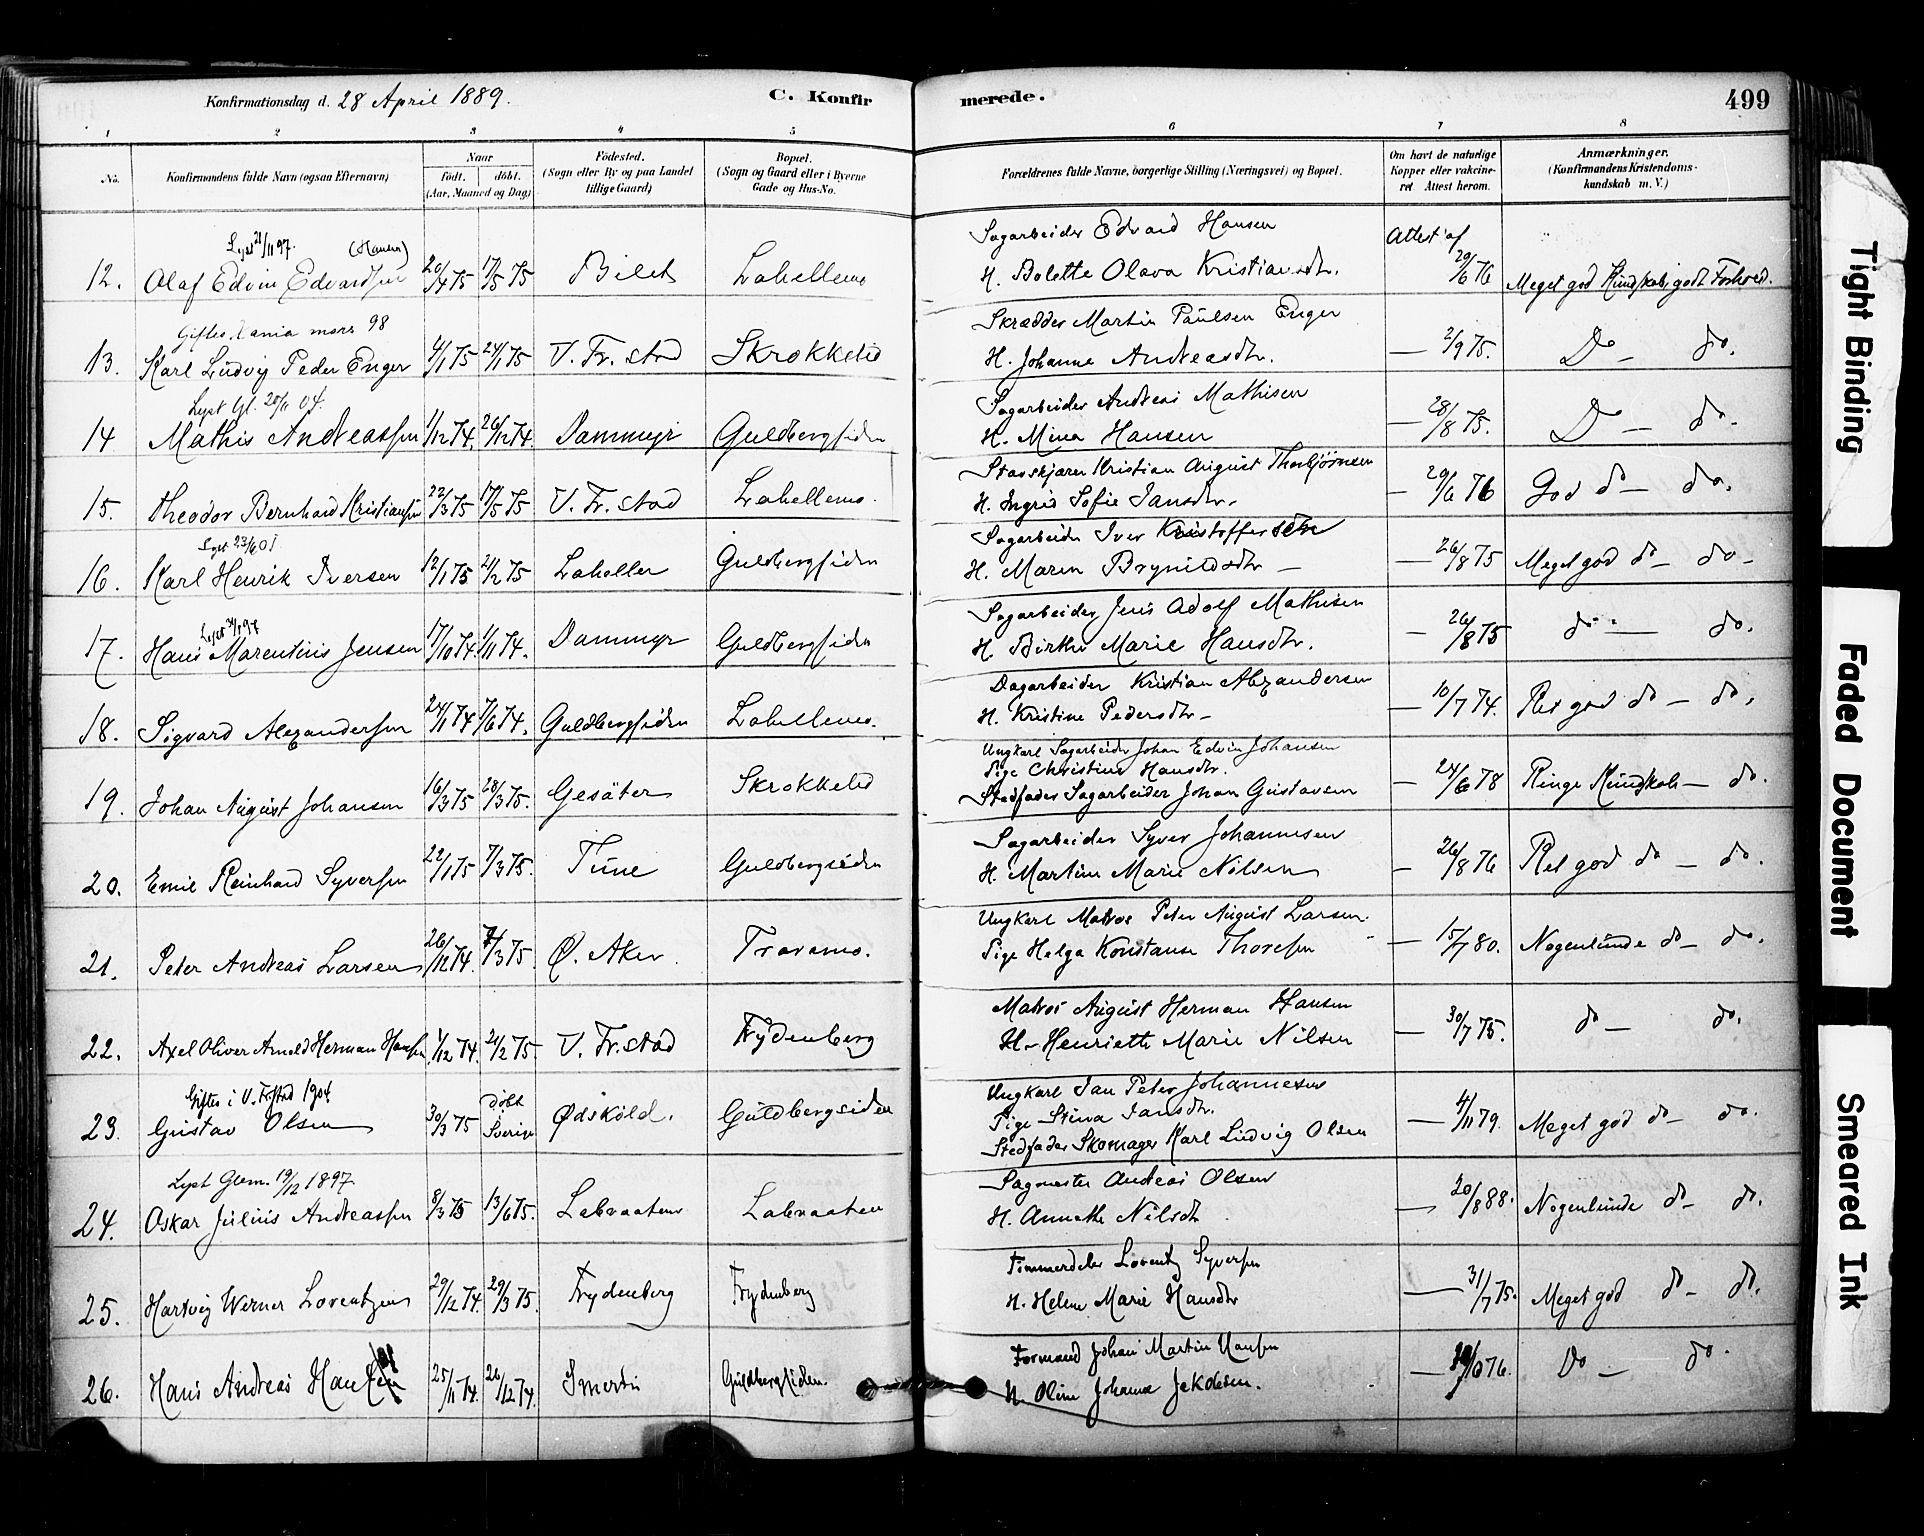 Konfirmationsdag d. 28 April 1889.
C. Konfir
merede.
499
1 2 3 4 5 6 7 8
No. Konfirmandens fulde Navn (ogsaa Efternavn) Naar født. døbt. (Aar, Maaned og Dag) Fødested. (Sogn eller By og paa Landet tillige Gaard) Bopæl. (Sogn og Gaard eller i Byerne Gade og Hus-No. Forældrenes fulde Navne, borgerlige Stilling (Næringsvei) og Bopæl. Om havt de naturlige Kopper eller vakcineret. Attest herom. Anmærkninger. (Konfirmandens Kristendomskundskab m. V.)
Lyst 21/11 97. (Hansen)
12. Olaf Edvin Edvardsen 20/4 75 17/5 75 Bilet Labellemo
Sagarbeider Edvard Hansen
H. Bolette Olava Kristiansdtr.
Attest af 29/6 76 Meget god Kundskab, godt Forhold.
Giftes mars 98
13. Karl Ludvig Peder Enger 4/1 75 24/1 75 V. Fr.stad Skrokkelid
Skrædder Martin Paulsen Enger
H. Johanne Andreasdtr.
— 2/9 75. Do — do.
Lyst Gl. 20/11 04.
14 Mathis Andreassen 1/12 74. 26/12 74. Dammyr Guldbergsiden
Sagarbeider Andreas Mathisen
H. Mina Hansen
— 28/8 75. Do — do.
15. Theodor Bernhard Kristiansen 22/3 75 17/5 75 V. Fr.stad Labellemo.
Kristian August Thorbjørnsen
H. Ingrid Sofie Jansdtr.
— 29/6 76 God do — do.
Lyst 23/6 01.
16. Karl Henrik Iversen 12/1 75 21/2 75 Labellen Guldbergsiden
Sagarbeider Iver Kristoffersen
H. Maren Brynildsdtr —
— 26/8 75 Meget god do — do —
17. Hans Marentius Jensen 17/10 74. 1/11 74. Dammyr Guldbergsiden
Sagarbeider Jens Adolf Mathisen
H. Birthe Marie Hansdtr.
— 26/8 75 do — do.
18. Sigvard Alexandersen 24/1 74 7/6 74. Guldbergsiden Labellemo.
Dagarbeider Kristian Alexandersen
H. Kristine Pedersdtr —
— 10/7 74. Ret god do — do.
19. Johan August Johansen 16/3 75 28/3 75. Gesäter Skrokkelid
Ungkarl Sagarbeider Johan Edvin Johansen
Pige Christine Hansdtr.
Stedfader Sagarbeider Johan Gustavsen
— 24/6 78 Ringe Kundskab — do.
20. Emil Reinhard Syversen 22/1 75 7/3 75. Tune Guldbergsiden
Sagarbeider Syver Johannesen
H. Martine Marie Nilsen
— 26/8 76 Ret god do — do.
21. Peter Andreas Larsen 26/12 74. 7/3 75. Ø. Aker. Traramo.
Ungkarl Matros Peter August Larsen.
Pige Helga Konstanse Thoresen
— 15/7 80. Nogenlunde do — do.
22. Axel Oliver Arnold Herman Hansen 1/12 74. 21/2 75. V. Fr.stad Frydenberg
Matros August Herman Hansen
H. Henriette Marie Nilsen
— 30/7 75. do — do.
Giftes i V. Frstad 1904.
23. Gustav Olsen 30/3 75 Døbt Sverige Ødsköld. Guldbergsiden
Ungkarl Jan Peter Johannesen
Pige Stina Jansdtr.
Stedfader Skomager Karl Ludvig Olsen
— 4/11 79. Meget god do — do.
Lyst Glem. 19/12 1897
24. Oskar Julius Andreassen 8/3 75 13/6 75. Labraaten Labraaten
Sagmester Andreas Olsen
H. Annethe Nilsdtr
— 20/8 88. Nogenlunde do — do.
25. Hartvig Werner Lorentzen 29/12 74. 29/3 75. Frydenberg Frydenberg
Tømmerdeler Lorentz Syversen
H. Helene Marie Hansdtr
— 31/7 75. Meget god do — do.
26. Hans Andreas Hansen 25/11 74. 26/12 74. Smertu Guldbergsiden.
Formand Johan Martin Hansen
H. Oline Johanne Jakobsen.
— Do — do.
Tight Binding
Faded Document
Smeared Ink